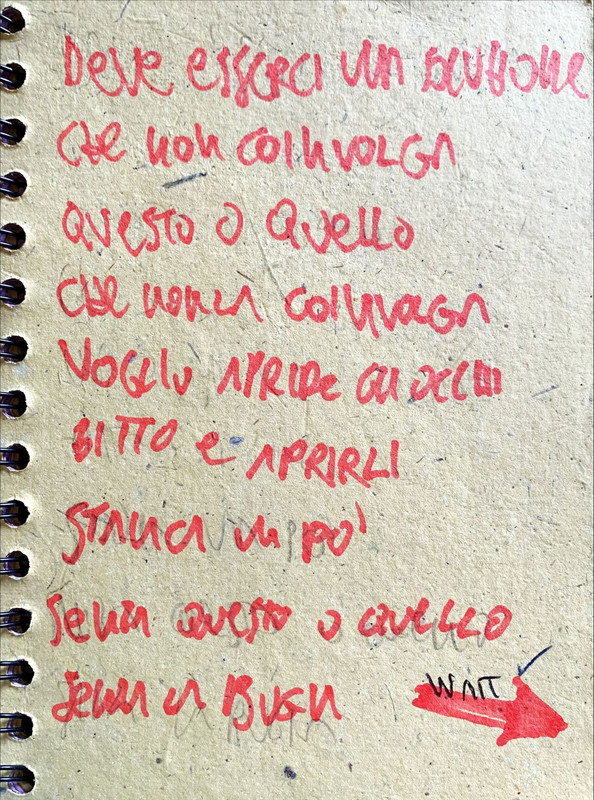 DEVE ESSERCI UNA SOLUZIONE
CHE NON COINVOLGA
QUESTO O QUELLO
CHE NON LA COINVOLGA
VOGLIO APRIRE GLI OCCHI
ZITTO E APRIRLI
UN PO'
SENZA QUESTO O QUELLO
SENZA
WAIT